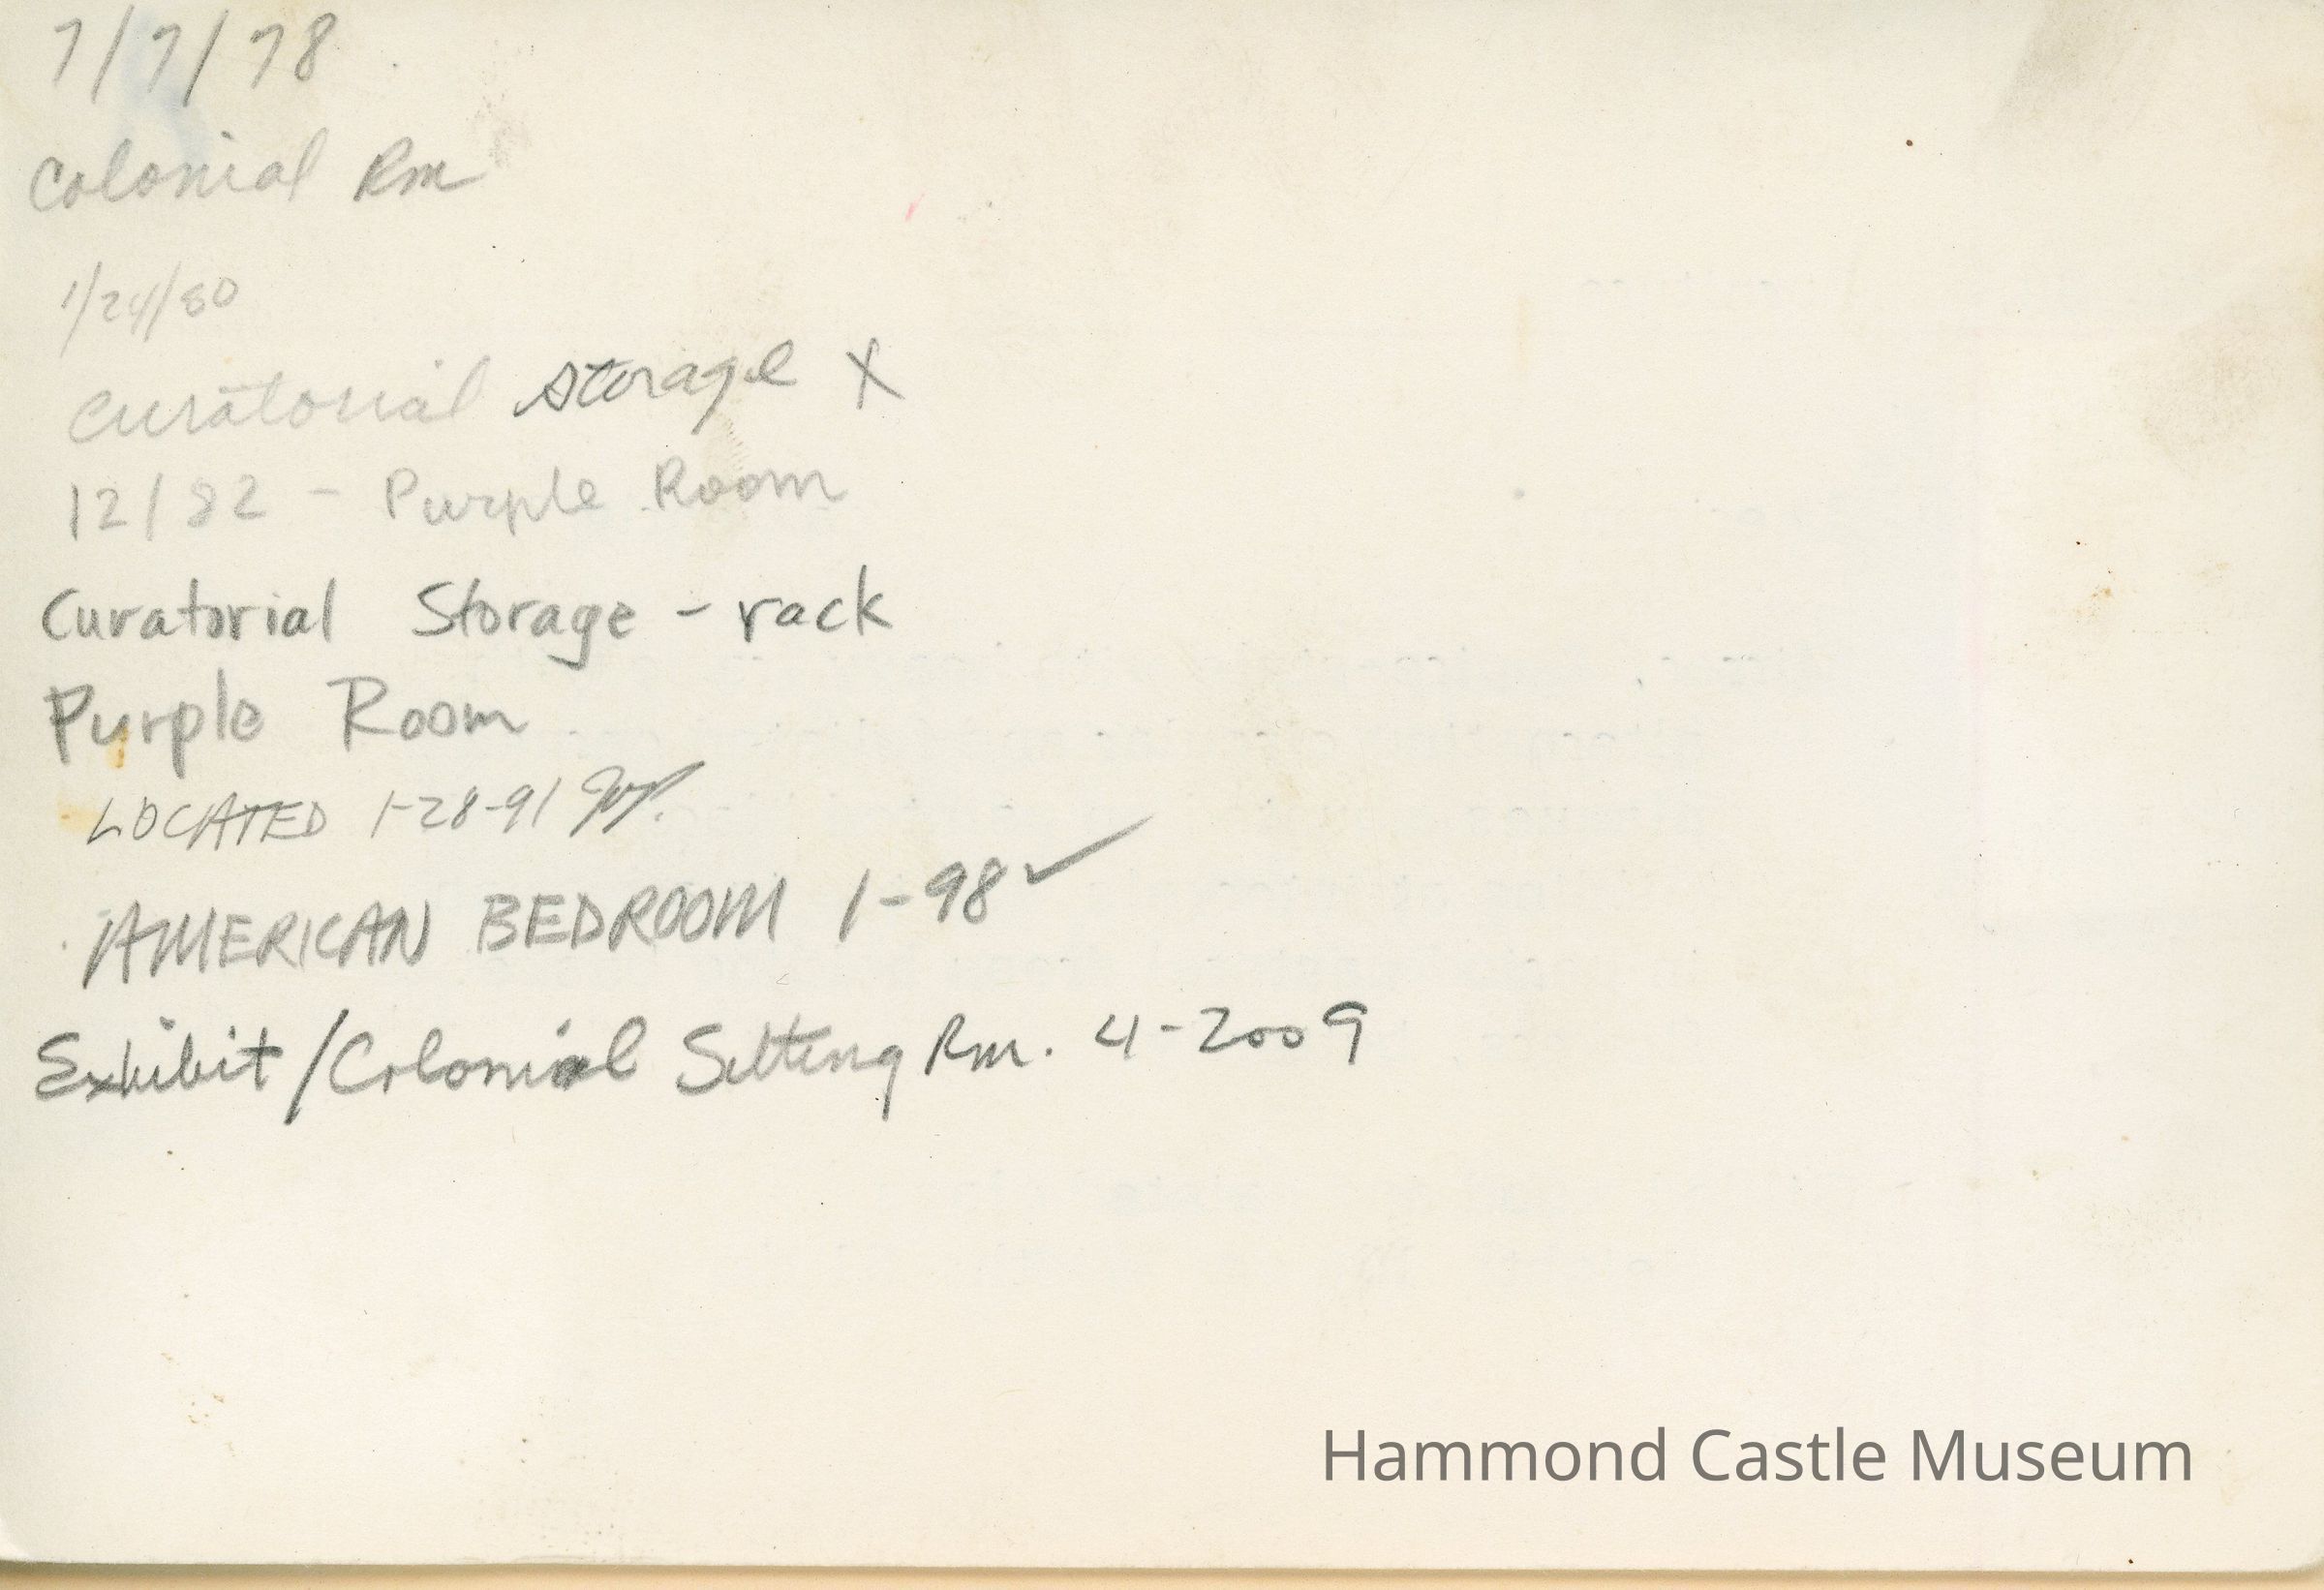 7/7/78
Colonial Rm
1/24/80
Curatorial Storage X
12/82 - Purple Room
Curatorial Storage - rack
Purple Room
LOCATED 1-28-91
AMERICAN BEDROOM 1-98 ✓
Exhibit/Colonial Sitting Rm. 4-2009
Hammond Castle Museum